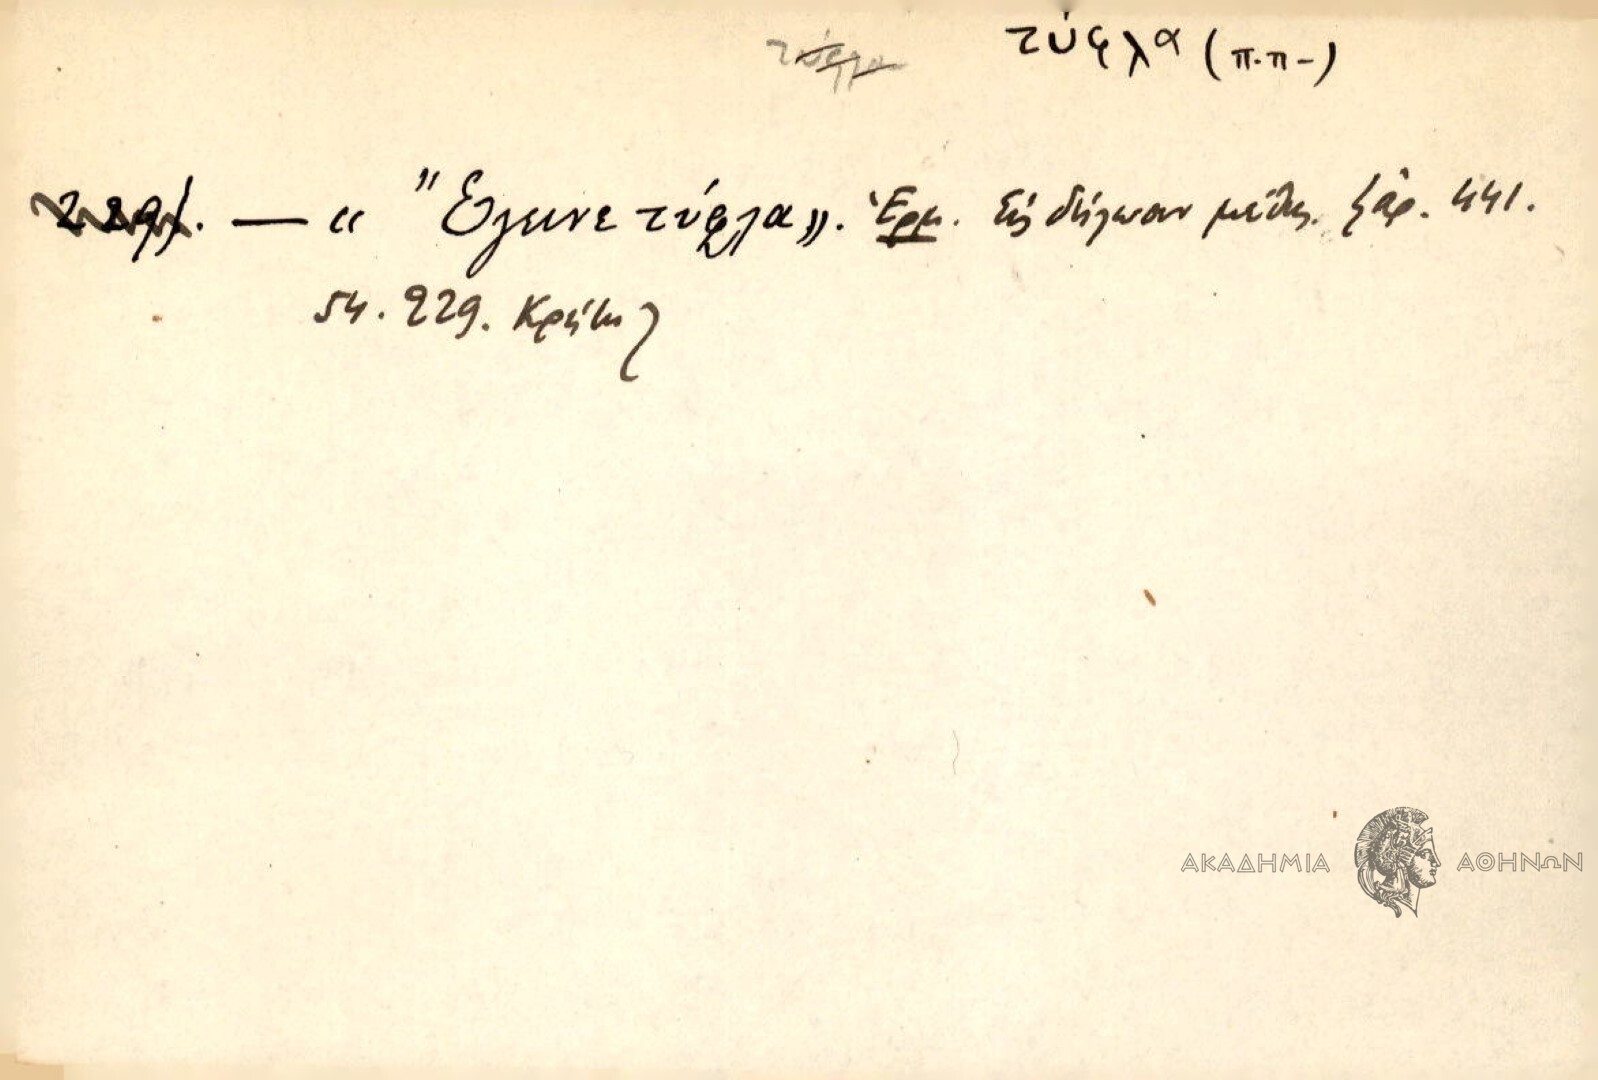 τύφλα τύφλα (π.π-)
229). — « Ἔγεινε τύφλα». Ἑρμ. Εἰς δήλωσιν μέθης. ἀρ. 441.
54. 229. Κρήτη
ΑΚΑΔΗΜΙΑ ΑΘΗΝΩΝ